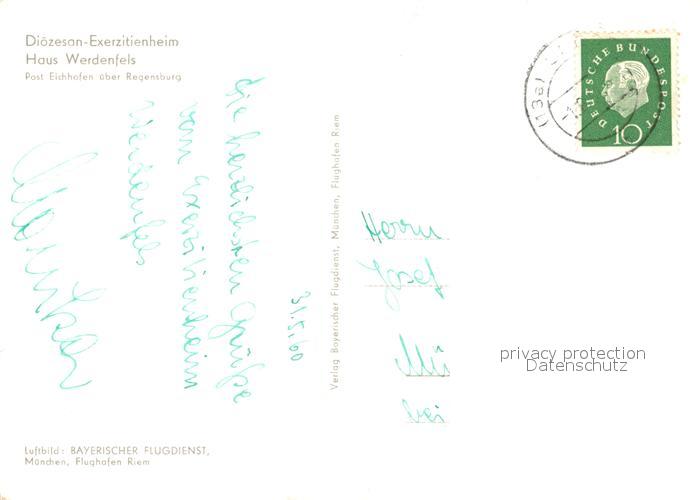 Diözesan-Exerzitienheim
Haus Werdenfels
Post Eichhofen über Regensburg
31.5.60
die herzlichsten Grüße
vom Exerzitienheim
Werdenfels
Verlag Bayerischer Flugdienst, München, Flughafen Riem
Luftbild: BAYERISCHER FLUGDIENST,
München, Flughafen Riem
(13a)
DEUTSCHE BUNDESPOST
10
Herrn
Josef
Mü
bei
privacy protection
Datenschutz